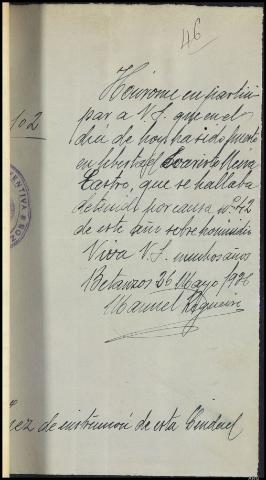 46
Hónrome en partici-
par a V.S. que en el
102
día de hoy ha sido puesto
en libertad Evaristo
Castro, que se hallaba
detenido por causa nº 42
de este año sobre homicidio
Viva V.S. muchos años
Betanzos 26 Mayo 1936
Manuel
ez de instrucción de esta Ciudad